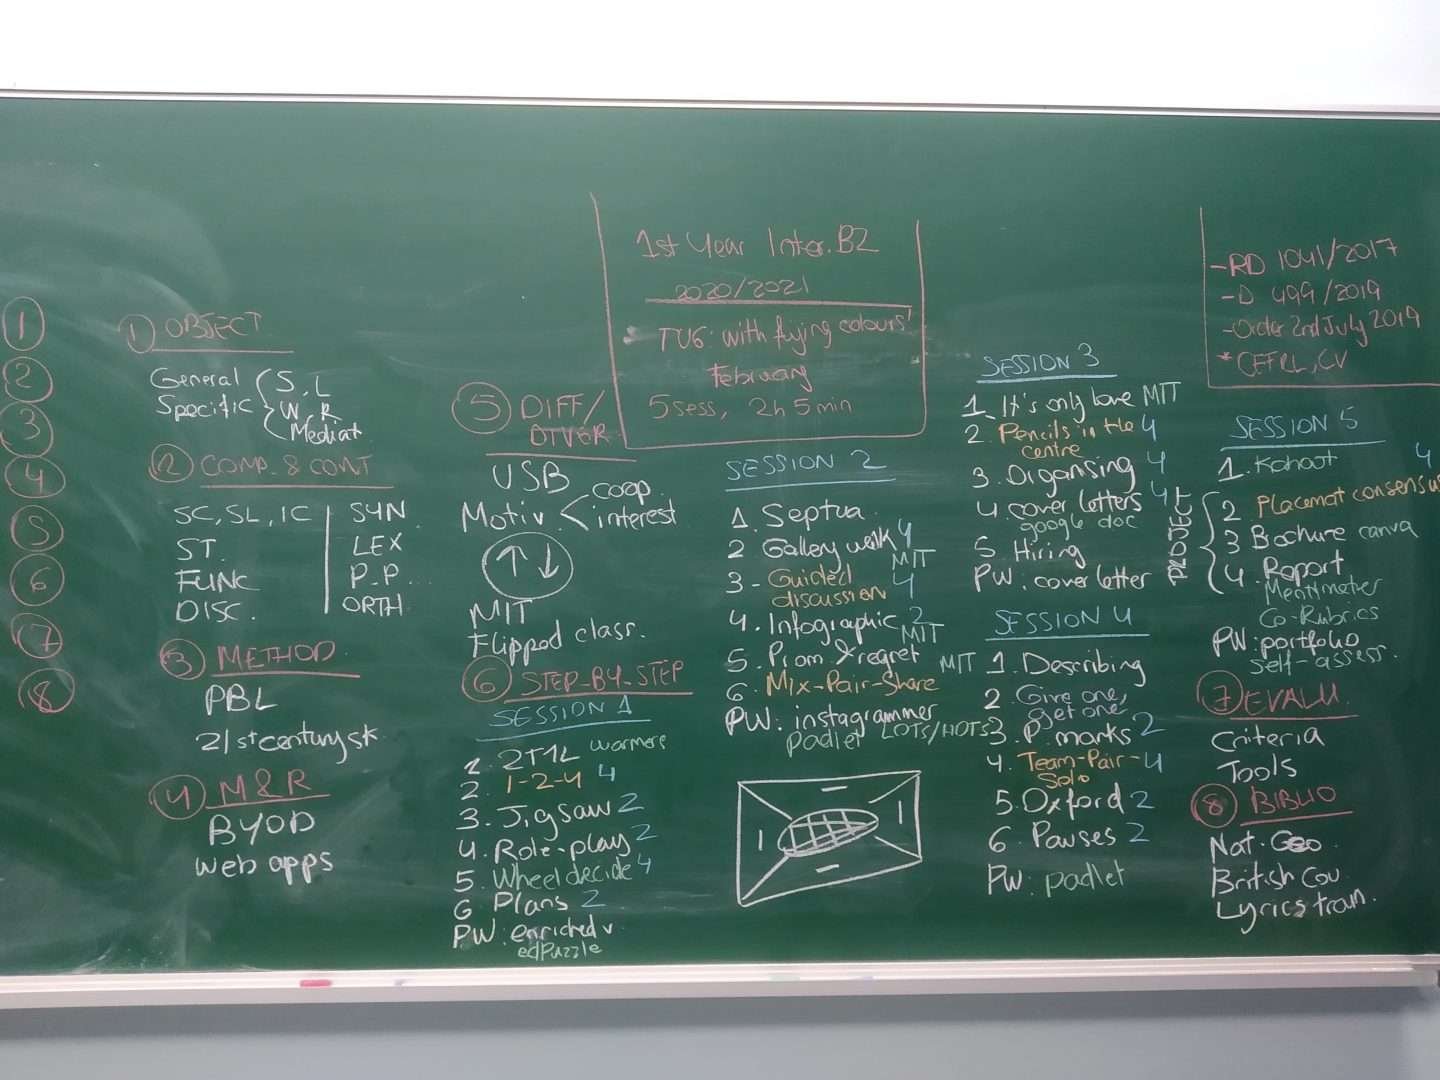 1
2
3
4
5
6
7
8
1 OBJECT
General S, L
Specific W, R
Mediat.
2 COMP. & CONT
SC, SL, IC
ST.
FUNC
DISC.
SYN
LEX
P-P...
ORTH.
3 METHOD
PBL
21st century sk.
4 M & R
BYOD
web apps
5 DIFF/
DIVER
USB
Motiv. coop.
interest
↑↓
MIT
Flipped class.
6 STEP-BY-STEP
SESSION 1
1. 2T1L warmers
2. 1-2-4 4
3. Jigsaw 2
4. Role-play 2
5. Wheel decide 4
6 Plans 2
PW: enriched v
edPuzzle
1st Year Inter. B2
2020/2021
TU6: 'with flying colours'
February
5 sess, 2h 5 min
SESSION 2
1. Septua.
2 Gallery walk 4
MIT
3 - Guided
discussion 4
4. Infographic 2
MIT
5. Prom & regret MIT
6. Mix-Pair-Share
PW: instagrammer
padlet LOTS/HOTS
SESSION 3
1. It's only love MIT
2. Pencils in the 4
centre
3. Organising 4
4. cover letters 4
google doc
5. Hiring
PW: cover letter
SESSION 4
1. Describing
2 Give one,
get one
3. P. marks 2
4. Team-Pair- 4
Solo
5. Oxford 2
6 Pauses 2
PW: padlet
- RD 1041/2017
- D 499/2019
- Order 2nd July 2019
* CEFRL, CV
SESSION 5
1. Kahoot 4
PROJECT
2 Placemat consensus
3 Brochure canva
4. Report
Mentimeter
Co-Rubrics
PW: portfolio
self-assess.
7 EVALU.
Criteria
Tools
8 BIBLIO
Nat. Geo
British Cou.
Lyrics train.